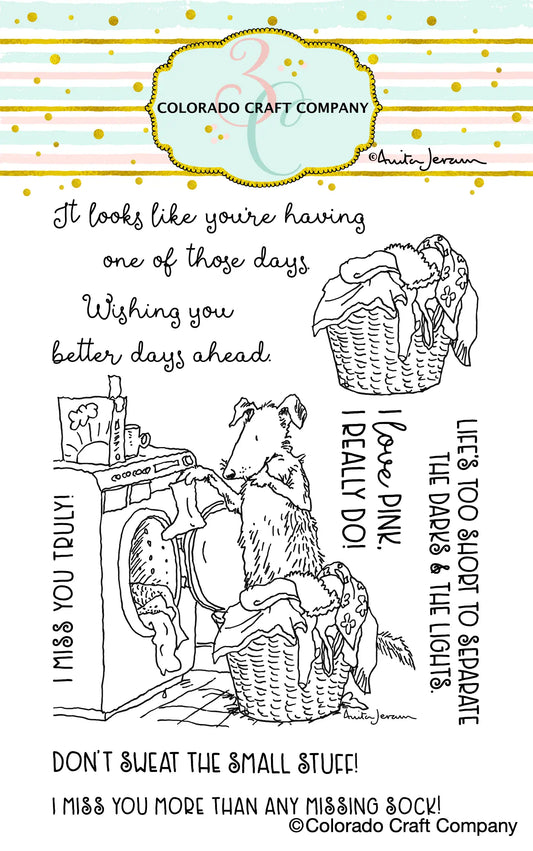 3C
COLORADO CRAFT COMPANY
©Anita Jeram
It looks like you're having
one of those days.
Wishing you
better days ahead.
I love PINK.
I REALLY DO!
LIFE'S TOO SHORT TO SEPARATE
THE DARKS & THE LIGHTS.
I MISS YOU TRULY!
Anita Jeram
DON'T SWEAT THE SMALL STUFF!
I MISS YOU MORE THAN ANY MISSING SOCK!
©Colorado Craft Company